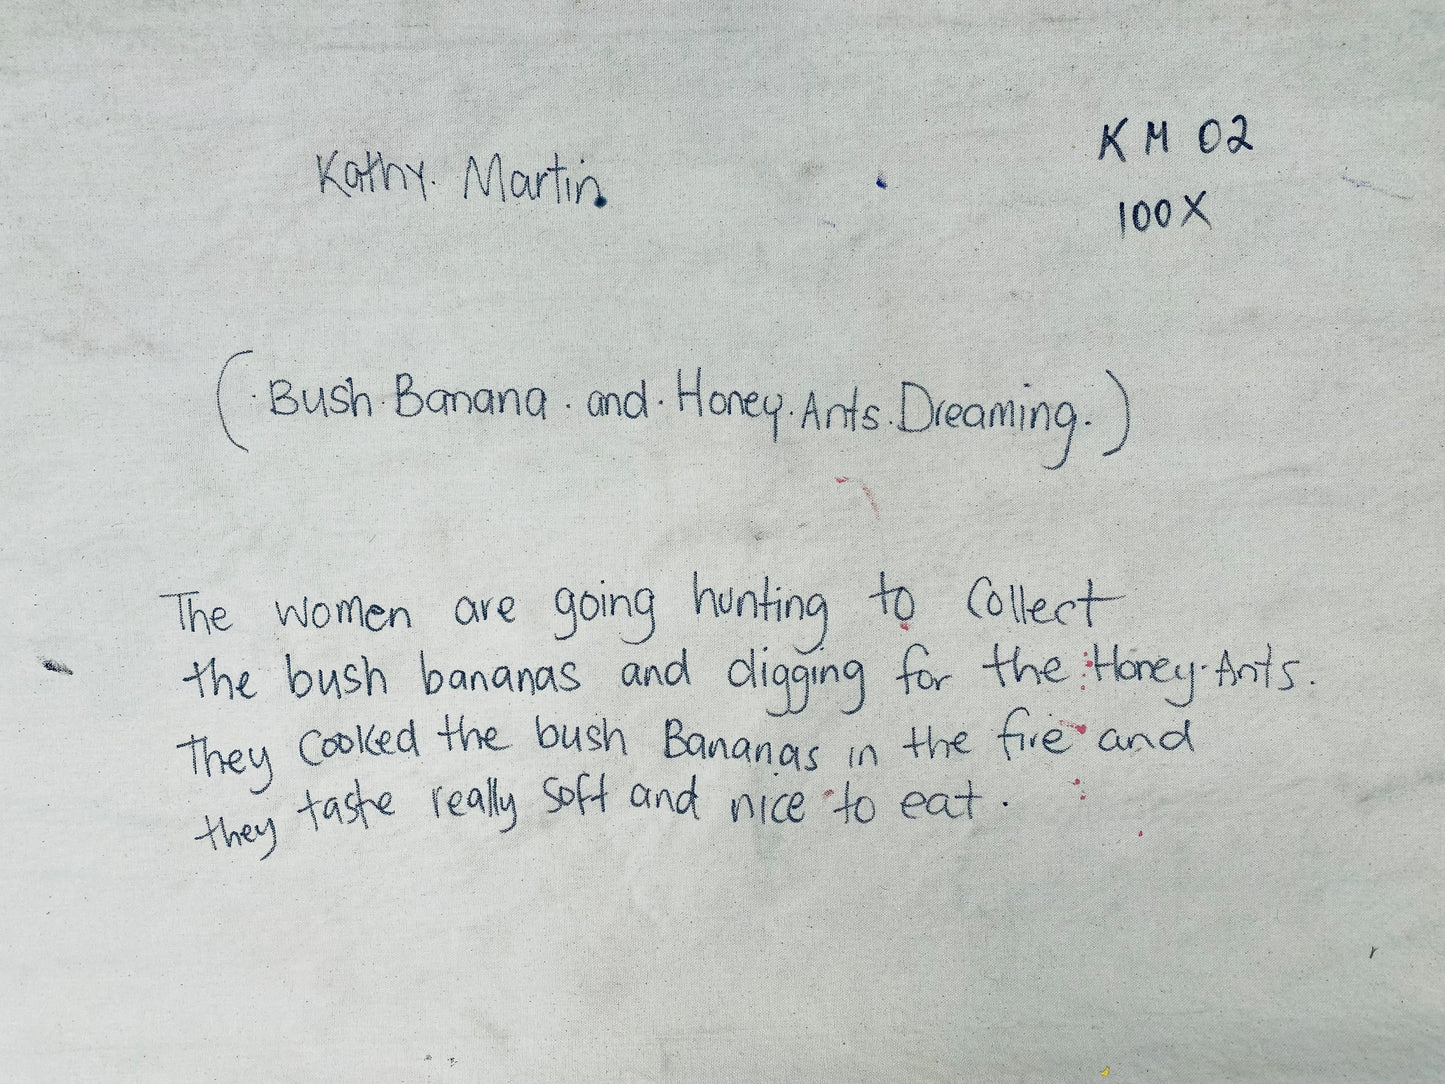 Kathy. Martin.
KM 02
100X
(. Bush. Banana. and. Honey. Ants. Dreaming.)
The women are going hunting to Collect
the bush bananas and digging for the Honey. Ants.
They Cooked the bush Bananas in the fire and
they taste really soft and nice to eat.